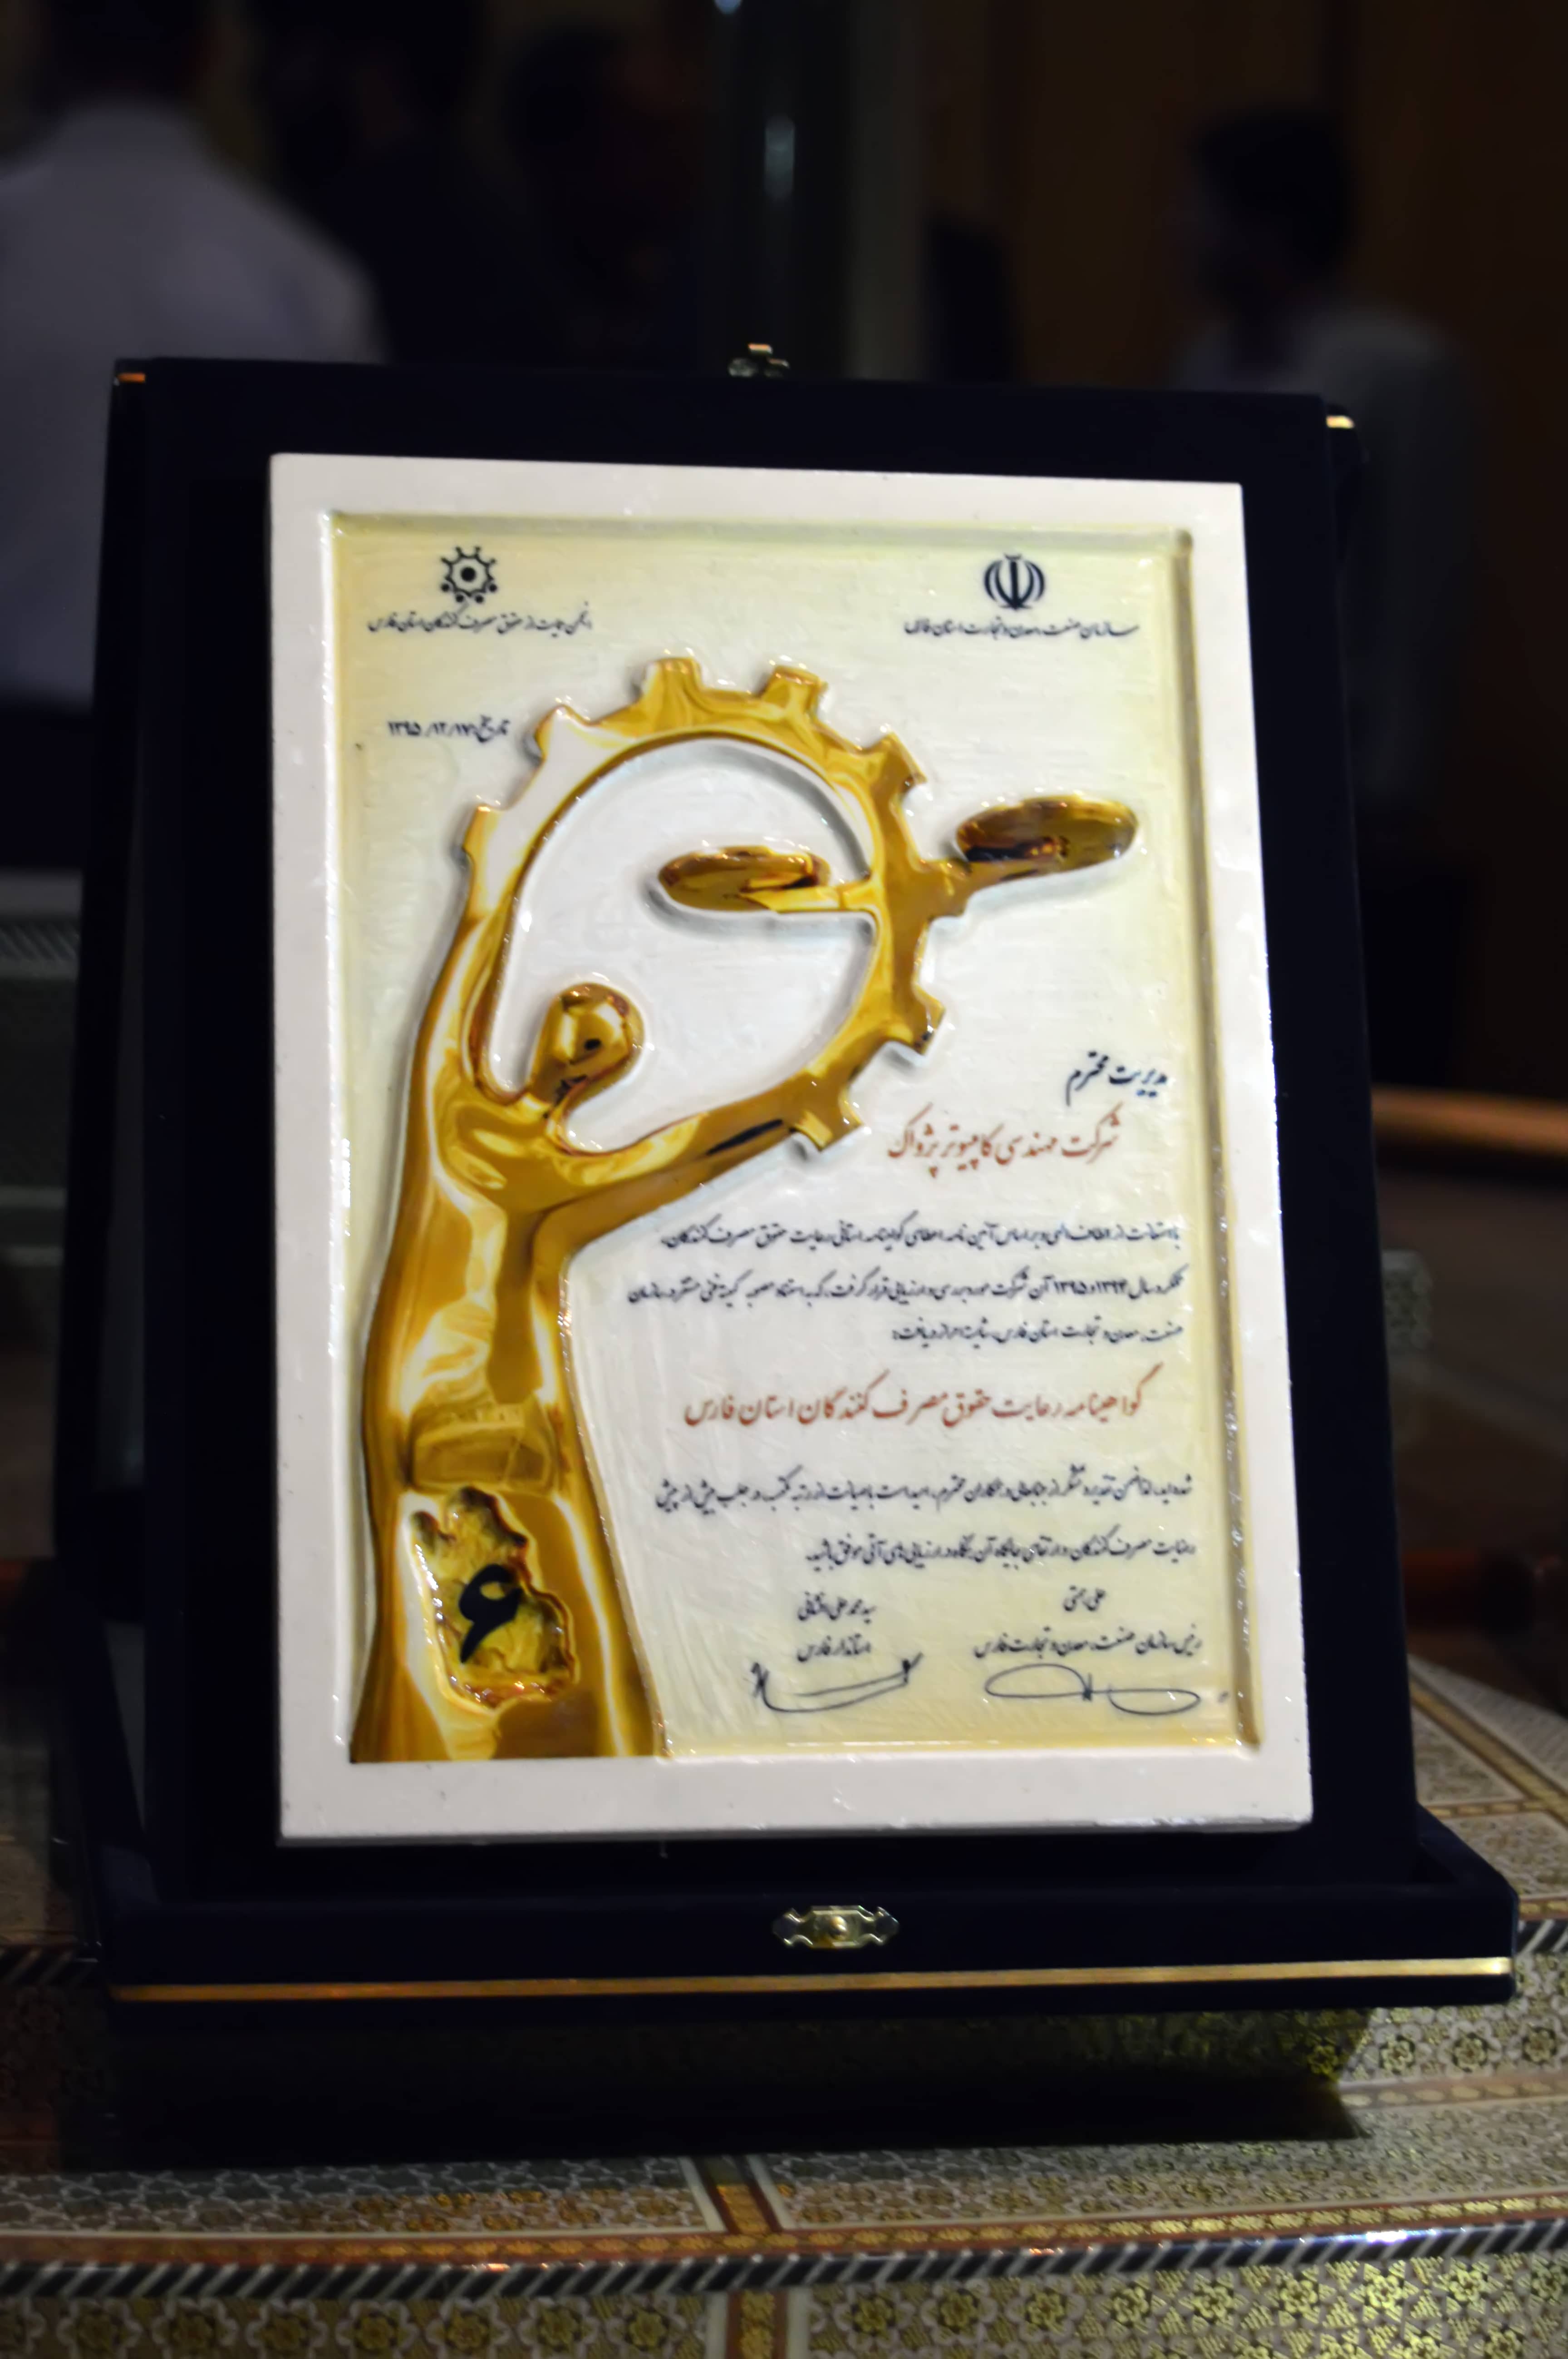 سازمان صنعت، معدن و تجارت استان فارس
انجمن حمایت از حقوق مصرف کنندگان استان فارس
تاریخ: ۱۳۹۵/۱۲/۱۷
مدیریت محترم
شرکت مهندسی کامپیوتر پژواک
با استعانت از الطاف الهی و بر اساس آیین نامه اعطای گواهینامه استانی رعایت حقوق مصرف کنندگان،
عملکرد سال ۱۳۹۴ و ۱۳۹۵ آن شرکت مورد بررسی و ارزیابی قرار گرفت، که به استناد مصوبه کمیته فنی مستقر در سازمان
صنعت، معدن و تجارت استان فارس، شایسته احراز دریافت:
گواهینامه رعایت حقوق مصرف کنندگان استان فارس
شده اید. لذا ضمن تقدیر و تشکر از جنابعالی و همکاران محترم، امید است با صیانت از رتبه مکتسبه در جلب بیش از پیش
رضایت مصرف کنندگان و ارتقای جایگاه آن بنگاه در ارزیابی های آتی موفق باشید.
علی همتی
رئیس سازمان صنعت، معدن و تجارت فارس
سید محمد علی افشانی
استاندار فارس
۶